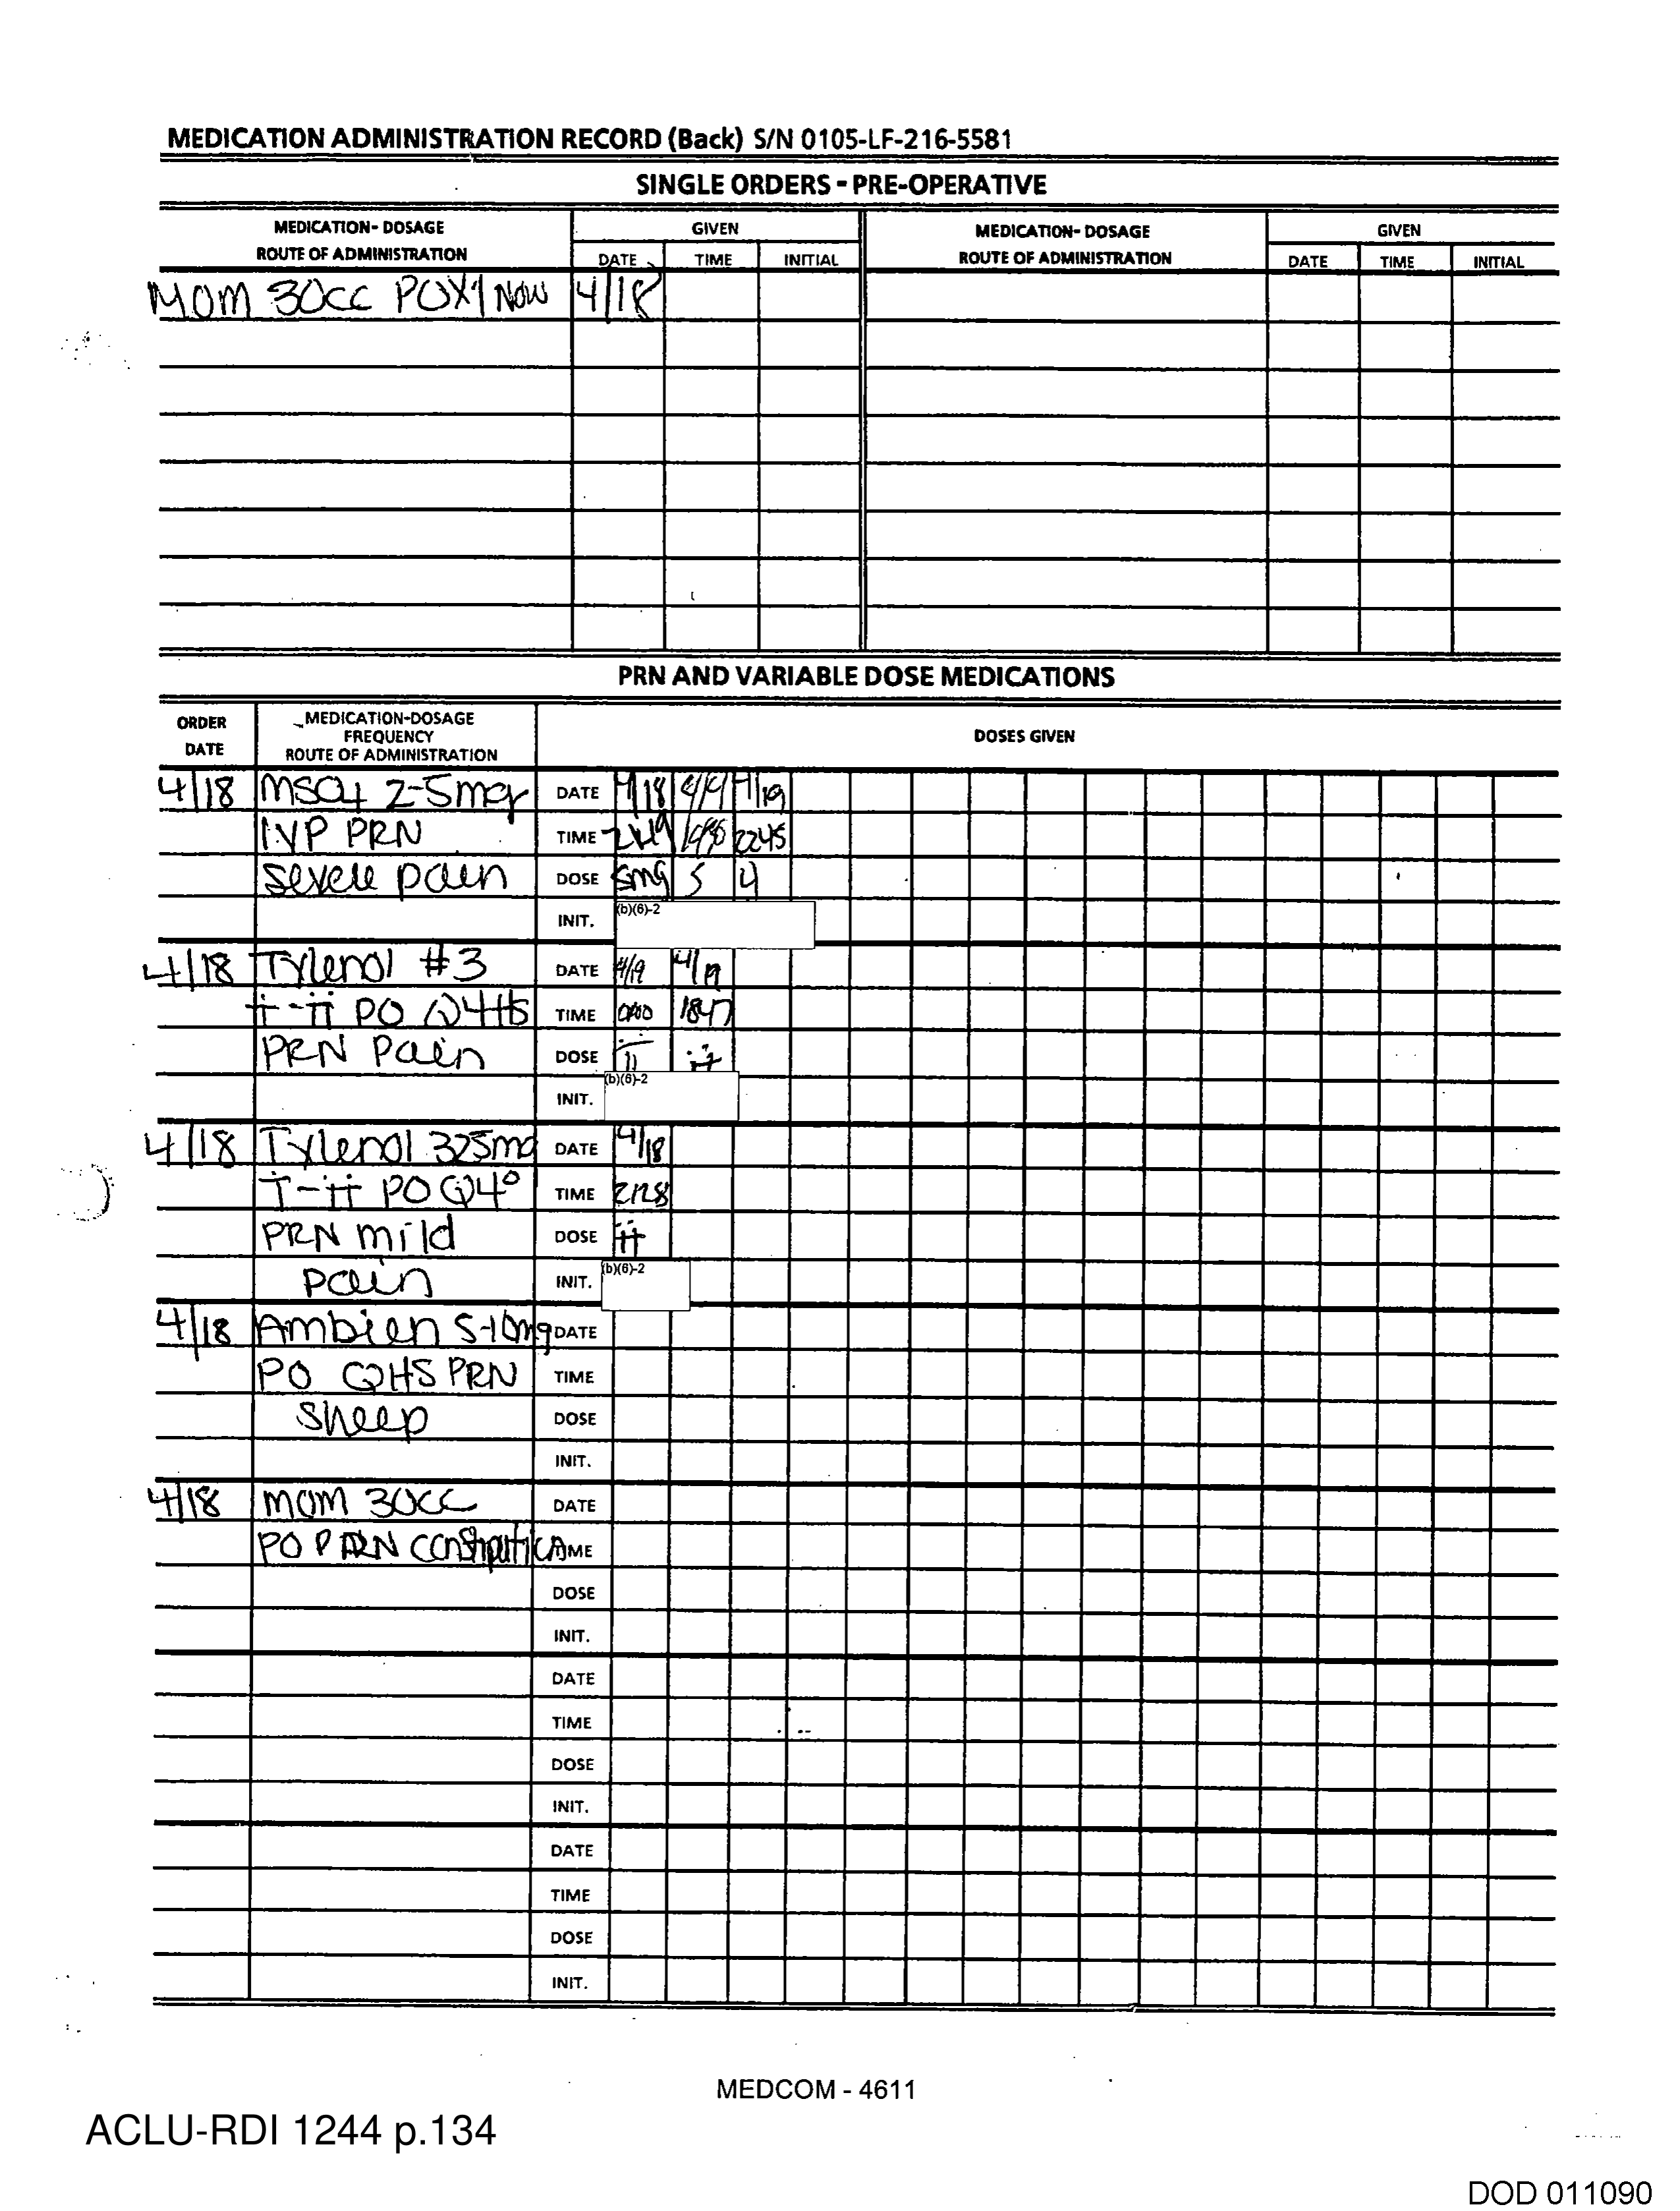 MEDICATION ADMINISTRATION RECORD (Back) S/N 0105-LF-216-5581
SINGLE ORDERS - PRE-OPERATIVE
MEDICATION- DOSAGE GIVEN MEDICATION- DOSAGE GIVEN
ROUTE OF ADMINISTRATION DATE TIME INITIAL ROUTE OF ADMINISTRATION DATE TIME INITIAL
MOM 30cc POX1 Now 4/18
PRN AND VARIABLE DOSE MEDICATIONS
ORDER DATE MEDICATION-DOSAGE FREQUENCY ROUTE OF ADMINISTRATION DOSES GIVEN
4/18 MSO4 2-5mg DATE 4/18 4/19
IVP PRN TIME 2245
severe pain DOSE 5mg 5 4
INIT. (b)(6)-2
4/18 Tylenol #3 DATE 4/19 4/19
i-ii PO Q4H TIME 1847
PRN Pain DOSE ii ii
INIT. (b)(6)-2
4/18 Tylenol 325mg DATE 4/18
i-ii PO Q4° TIME 2128
PRN mild DOSE ii
pain INIT. (b)(6)-2
4/18 Ambien 5-10mg DATE
PO QHS PRN TIME
sleep DOSE
INIT.
4/18 MOM 30cc DATE
PO PRN constipation TIME
DOSE
INIT.
DATE
TIME
DOSE
INIT.
DATE
TIME
DOSE
INIT.
MEDCOM - 4611
ACLU-RDI 1244 p.134
DOD 011090